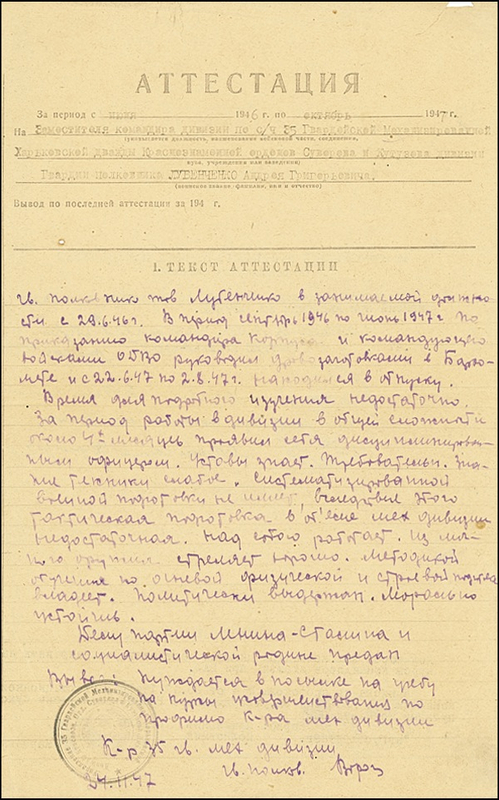 АТТЕСТАЦИЯ
За период с июня 1946 г. по октябрь 1947 г.
На Заместителя командира дивизии по с/ч 35 Гвардейской Механизированной
Харьковской дважды Краснознаменной орденов Суворова и Кутузова дивизии
Гвардии полковника ЛУБЕНЧЕНКО Андрея Григорьевича.
(воинское звание, фамилия, имя и отчество)
Вывод по последней аттестации за 194 г.
1. ТЕКСТ АТТЕСТАЦИИ
гв. полковник тов Лубенченко в занимаемой должно
сти с 29.6.46г. В период сентябрь 1946 по июнь 1947 г по
приказанию командира корпуса и командующего
войсками ОдВО руководил дровозаготовками в
и с 22.6.47 по 2.8.47г. находился в отпуску.
Время для подробного изучения недостаточно.
За период работы в дивизии в общей сложности
около 4х месяцев проявил себя дисциплинирован-
ным офицером. Уставы знает. Требователен. Зна-
ние техники слабое. Систематизированной
военной подготовки не имеет, вследствие этого
тактическая подготовка в об'еме мех дивизии
недостаточная. Над собою работает. Из лич-
ного оружия стреляет хорошо. Методикой
обучения по огневой физической и строевой подготов
владеет. Политически выдержан. Морально
устойчив.
Делу партии Ленина-Сталина и
социалистической родине предан
Вывод: Нуждается в посылке на учебу
на курсы усовершенствования по
профилю к-ра мех дивизии
К-р 35 гв. мех дивизии
гв. полков.
24.11.47